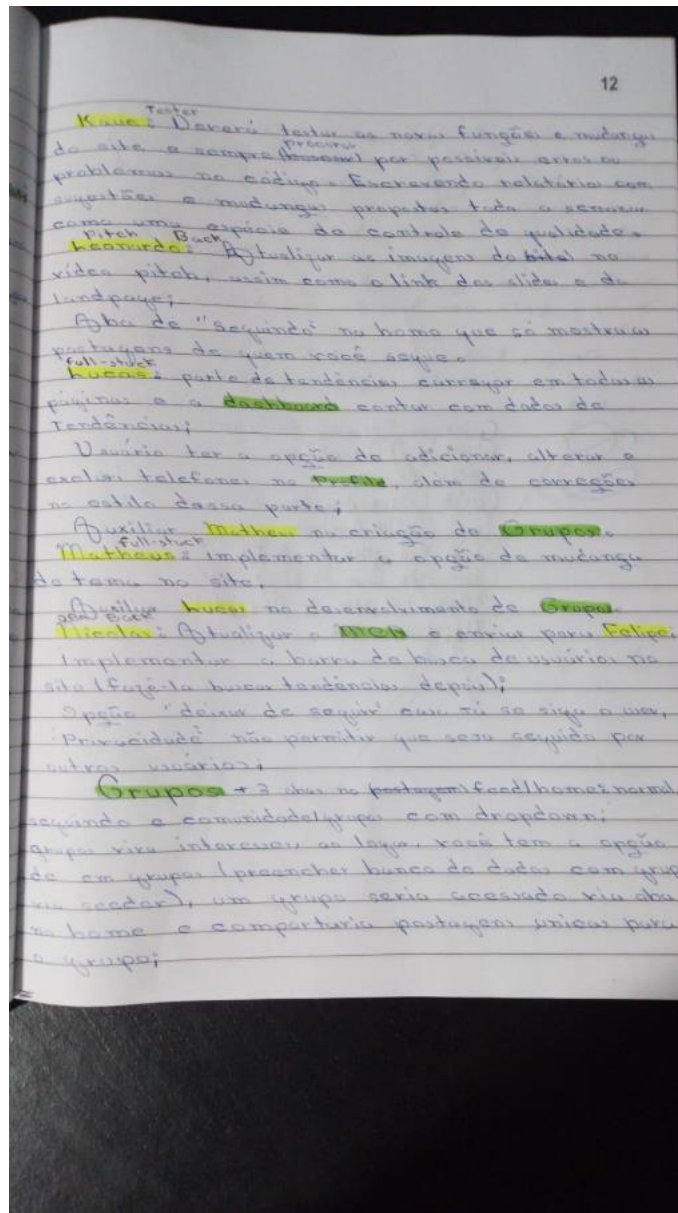 12
Tester
Kaue: Deverá testar as novas funções e mudanças
procurar
do site e sempre (buscar) por possíveis erros ou
problemas no código. Escrevendo relatórios com
sugestões e mudanças propostas toda a semana
como uma espécie de controle de qualidade.
Pitch Back
Leonardo: Atualizar as imagens do site no
vídeo pitch, assim como o link dos slides e da
landpage;
Aba de "seguindo" na home que só mostra as
postagens de quem você segue.
full-stack
Lucas: parte de tendências carregar em todas as
páginas e a dashboard contar com dados de
Tendências;
Usuário ter a opção de adicionar, alterar e
excluir telefones no Profile, além de correções
no estilo dessa parte;
Auxiliar Matheus na criação de Grupos.
full-stack
Matheus: implementar a opção de mudança
de tema no site.
Auxiliar Lucas no desenvolvimento de Grupo.
Back
Nicolas: Atualizar o MER e enviar para Felipe;
Implementar a barra de busca de usuários no
site (fazê-la buscar tendências depois);
Opção "deixar de seguir" caso já se siga o user,
"Privacidade" não permitir que seja seguido por
outros usuários;
Grupos → 3 abas no postagem/feed/home: normal
seguindo e comunidade/grupos com dropdown;
grupos interesses ao logar, você tem a opção
de em grupos (preencher banco de dados com grup
via seeder), um grupo seria acessado via aba
na home e compartiria postagens únicas para
o grupo;